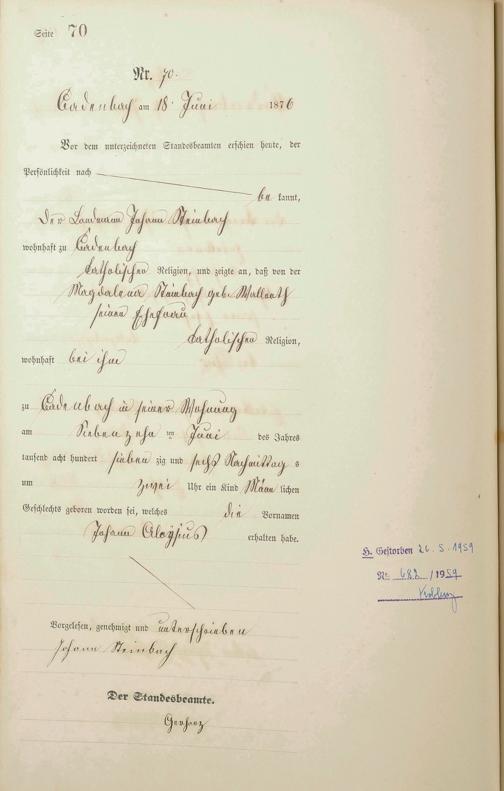 Seite 70
Nr. 70.
Cadenbach am 18. Juni 1876
Vor dem unterzeichneten Standesbeamten erschien heute, der
Persönlichkeit nach
be kannt,
der Landmann Johann Steinbach
wohnhaft zu Cadenbach
katholischer Religion, und zeigte an, daß von der
Magdalena Steinbach geb.
seiner Ehefrau
katholischer Religion,
wohnhaft bei ihm
zu Cadenbach in seiner Wohnung
am Siebenzehn ten Juni des Jahres
tausend acht hundert sieben zig und sechs Nachmittag s
um zwei Uhr ein Kind Männ lichen
Geschlechts geboren worden sei, welches die Vornamen
Johann Aloÿsius erhalten habe.
H. Gestorben 26. 5. 1959
Nr. 682 /1959
Koblenz
Vorgelesen, genehmigt und unterschrieben
Johann Steinbach
Der Standesbeamte.
Gerharz